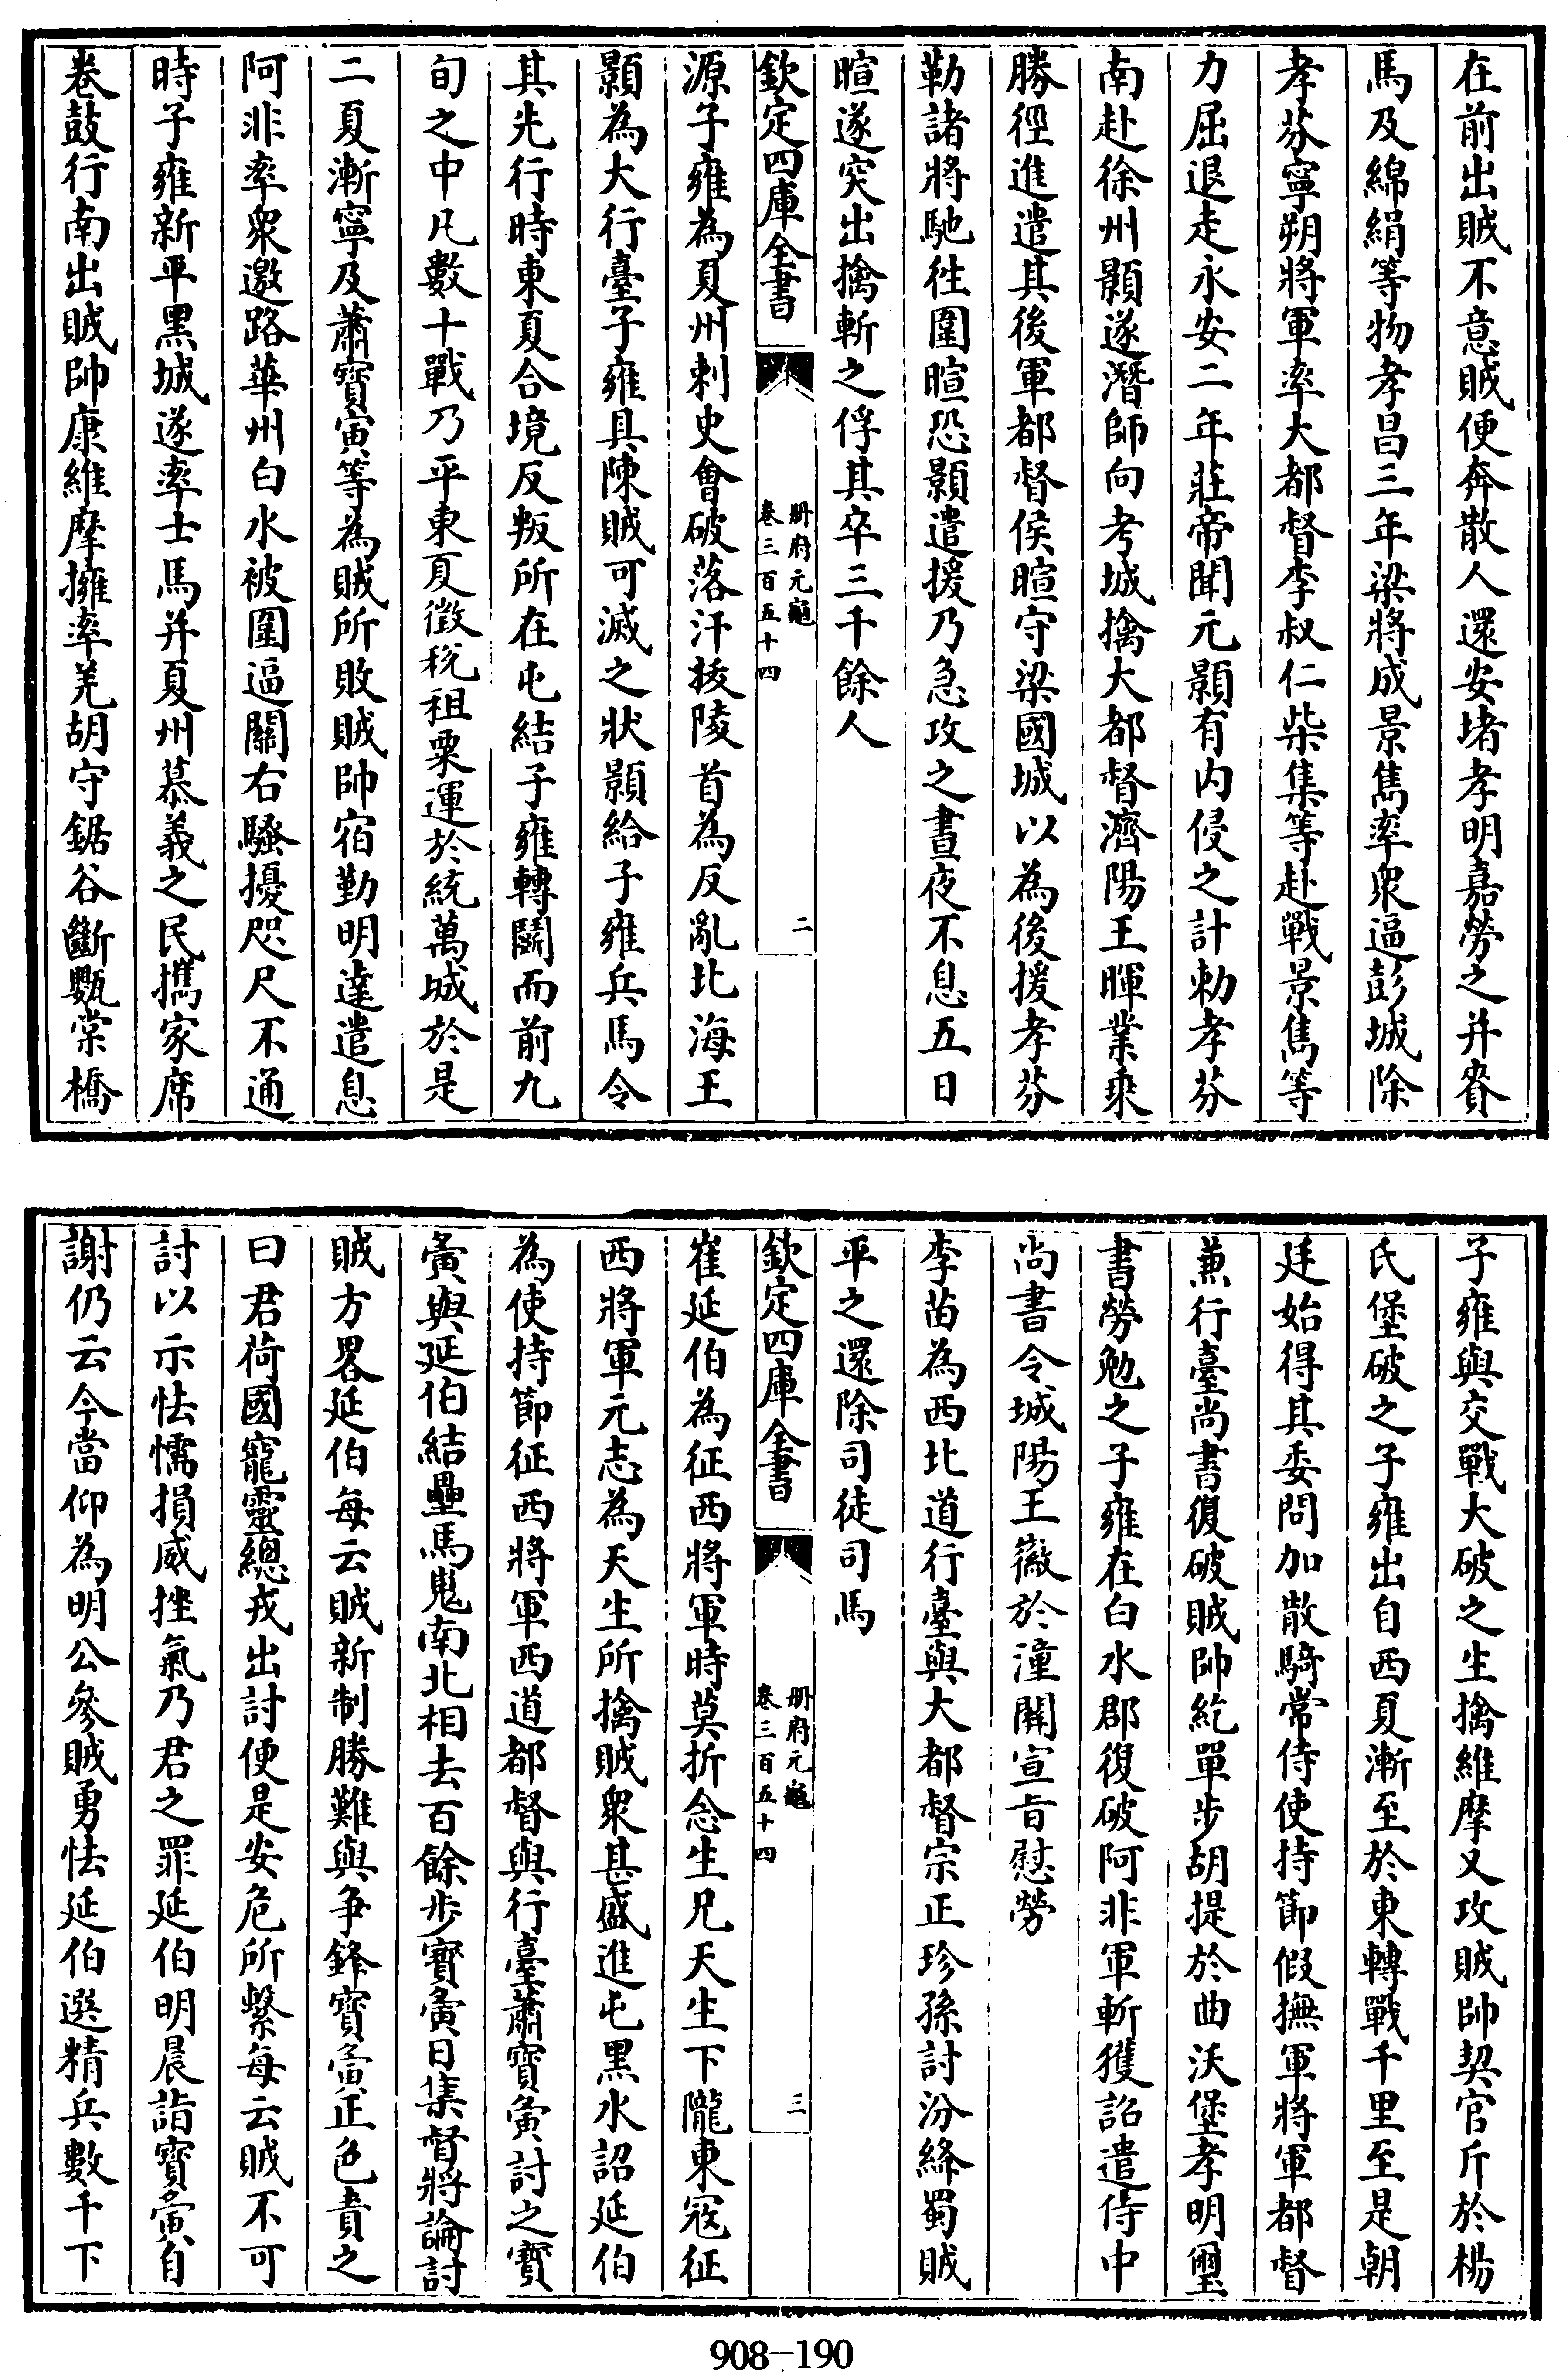 在前出賊不意賊便奔散人還安堵孝明嘉勞之并賚
馬及綿絹等物孝昌三年梁將成景雋率衆逼彭城除
孝芬寧朔將軍率大都督李叔仁柴集等赴戰景雋等
力屈退走永安二年莊帝聞元顥有内侵之計勅孝芬
南赴徐州顥遂潛師向考城擒大都督濟陽王暉業乘
勝徑進遣其後軍都督侯暄守梁國城以為後援孝芬
勒諸將馳徃圍暄恐顥遣援乃急攻之晝夜不息五日
暄遂突出擒斬之俘其卒三千餘人
欽定四庫全書
冊府元龜
卷三百五十四
二
源子雍為夏州刺史會破落汗拔陵首為反亂北海王
顥為大行臺子雍具陳賊可滅之狀顥給子雍兵馬令
其先行時東夏合境反叛所在屯結子雍轉鬭而前九
旬之中凡數十戰乃平東夏徵稅租粟運於統萬城於是
二夏漸寧及蕭寳寅等為賊所敗賊帥宿勤明達遣息
阿非率衆邀路華州白水被圍逼關右騷擾咫尺不通
時子雍新平黑城遂率士馬并夏州慕義之民攜家席
卷鼓行南出賊帥康維摩擁率羌胡守鋸谷斷甎棠橋
子雍與交戰大破之生擒維摩又攻賊帥契官斤於楊
氏堡破之子雍出自西夏漸至於東轉戰千里至是朝
廷始得其委問加散騎常侍使持節假撫軍將軍都督
兼行臺尚書復破賊帥紇單步胡提於曲沃堡孝明璽
書勞勉之子雍在白水郡復破阿非軍斬獲詔遣侍中
尚書令城陽王徽於潼關宣旨慰勞
李苗為西北道行臺與大都督宗正珍孫討汾絳蜀賊
平之還除司徒司馬
欽定四庫全書
冊府元龜
卷三百五十四
三
崔延伯為征西將軍時莫折念生兄天生下隴東寇征
西將軍元志為天生所擒賊衆甚盛進屯黑水詔延伯
為使持節征西將軍西道都督與行臺蕭寳夤討之寳
夤與延伯結壘馬嵬南北相去百餘步寳夤日集督將論討
賊方畧延伯每云賊新制勝難與争鋒寳夤正色責之
曰君荷國寵靈總戎出討便是安危所繫每云賊不可
討以示怯懦損威挫氣乃君之罪延伯明晨詣寳夤自
謝仍云今當仰為明公參賊勇怯延伯選精兵數千下
908-190